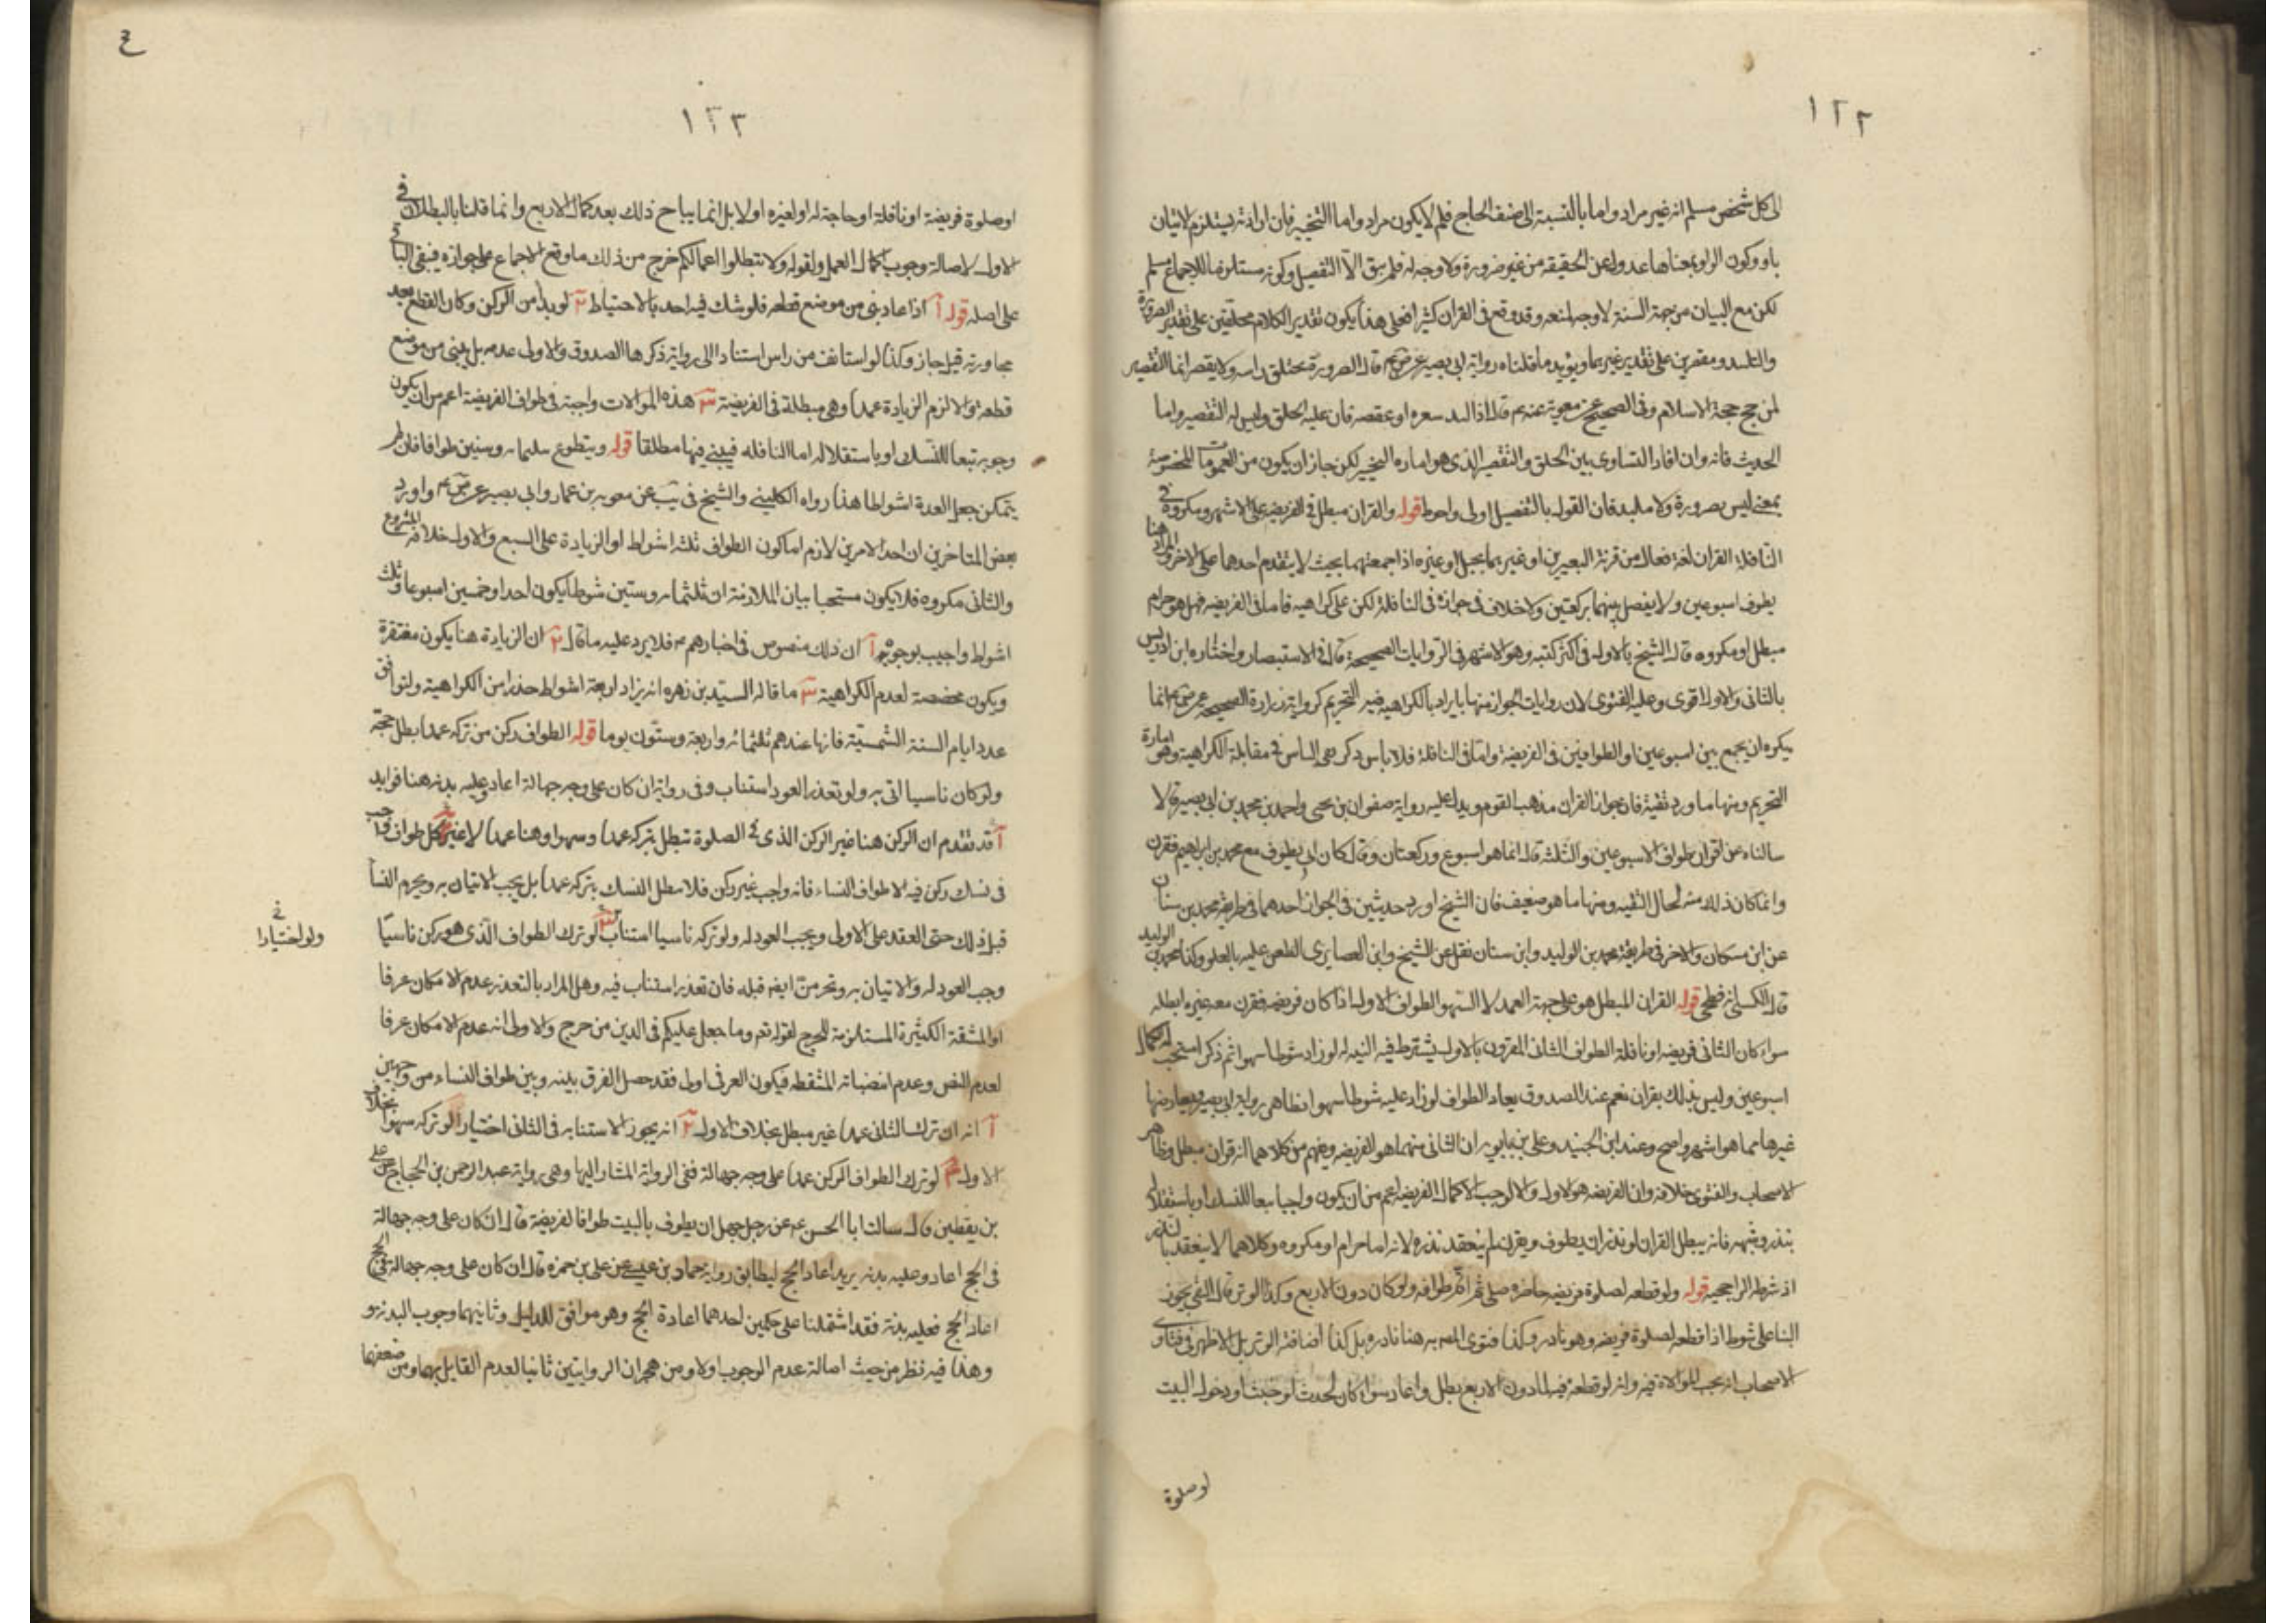 ١٢٢
الى كل شخص مسلم انه غير مراد واما بالنسبة الى صنف الحاج فلم لا يكون مراد واما التخيير فان ارادته يستلزم لاتيان
باو وكون الواو بمعناها عدول عن الحقيقة من غير ضرورة ولا وجه له فلم يبق الا التفصيل وكونه مستلزما للاجماع مسلم
لكن مع البيان من جهة السنة لا وجه لمنعه وقد وقع فى القران كثيرا فعلى هذا يكون تقدير الكلام محلقين على تقدير الصرورة
والملبد ومقصرين على تقدير غيرهما ويؤيد ما قلناه رواية ابى بصير عن قال الصرورة يحتلق راسه ولا يقصر انما التقصير
لمن حج حجة الاسلام وفى الصحيح عن معوية عنه قال اذا لبد شعره او عقصه فان عليه الحلق وليس له التقصير واما
الحديث فانه وان افاد التساوى بين الحلق والتقصير الذى هو اماره التخيير لكن جاز ان يكون من العمومات المخصوصة
بمعنى ليس بصرورة ولا ملبد فان القول بالتفصيل اولى واحوط قوله والقران مبطل فى الفريضه على الاشهر ومكروه فى
النافلة القران لغة فعال من قرنة البعيرين او غيرهما بحبل او غيره اذا جمعتهما بحيث لا يتقدم احدهما على الاخر والمراد هنا
يطوف اسبوعين ولا يفصل بينهما بركعتين ولا خلاف فى جوازه فى النافلة لكن على كراهيه فاما فى الفريضه فهل هو حرام
مبطل او مكروه قال الشيخ بالاول فى اكثر كتبه وهو الاشهر فى الروايات الصحيحة وقال فى الاستبصار واختاره ابن ادريس
بالثانى والاول اقوى وعليه الفتوى لان روايات الجواز منها ما يراد بالكراهيه فيه التحريم كرواية زرارة الصحيحه عن انما
يكره ان يجمع بين اسبوعين او الطوافين فى الفريضة واما فى النافلة فلا باس ذكر الباس فى مقابلة الكراهية وهو امارة
التحريم ومنها ما ورد تقية فان جواز القران مذهب القوم ويدل عليه رواية صفوان بن يحيى واحمد بن محمد بن ابى بصير قالا
سالناه عن اقران طواف الاسبوعين والثلثة قال انما هو اسبوع وركعتان وقال كان ابى يطوف مع محمد بن ابراهيم فقرن
وانما كان ذلك منه لحال التقيه ومنها ما هو ضعيف فان الشيخ اورد حديثين فى الجواز احدهما فى طريقه محمد بن سنان
عن ابن مسكان والاخر فى طريقة محمد بن الوليد وابن سنان نقل عن الشيخ وابن الغضايرى الطعن عليه بالغلو وكذا محمد بن الوليد
قال الكشى انه فطحى قوله القران المبطل هو على جهة العمد لا السهو الطواف الاول اذا كان فريضه فقرن معه غيره ابطله
سواء كان الثانى فريضه او نافلة الطواف الثانى المقرون بالاول يشترط فيه النيه له لو زاد شوطا سهوا ثم ذكر استحب له اكمال
اسبوعين وليس ذلك بقران نعم عند الصدوق يعاد الطواف لو زاد عليه شوطا سهوا لظاهر رواية ابى بصير ويعارضها
غيرها مما هو اشهر واصح وعند ابن الجنيد وعلى بن بابويه ان الثانى منهما هو الفريضه ويفهم من كلاهما انه قران مبطل وظاهر
الاصحاب والفتوى خلافه وان الفريضه هو الاول والا لوجب الاكمال الفريضه اعم من ان يكون واجبا تبعا للنسك او باستقلاله
بنذر وشبهه فانه يبطل القران لو نذر ان يطوف ويقرن لم ينعقد نذره لانه اما حرام او مكروه وكلاهما لا ينعقد بالنذر
اذ شرطه الراجحيه قوله ولو قطعه لصلوة فريضه حاضره صلى ثم اتم طوافه ولو كان دون الاربع وكذا الوتر قال الشيخ يجوز
البنا على شوط اذا قطعه لصلوة فريضه وهو نادر وكذا فتوى المص به هنا نادره بل كذا اضافة الوتر بل الاظهر فى فتاوى
الاصحاب انه يجب الموالاة فيه وانه لو قطعه فيما دون الاربع بطل واعاد سواء كان لحدث او خبث او دخول البيت
او صلوة
١٢٣
او صلوة فريضة او نافلة او حاجة له او لغيره او لا بل انما يباح ذلك بعد كمال الاربع وانما قلنا بالبطلان فى
الاول لاصالة وجوب اكمال العمل ولقوله ولا تبطلوا اعمالكم خرج من ذلك ما وقع الاجماع على جوازه فيبقى الباقى
على اصله قوله آ اذا عاد بنى من موضع قطعه فلو شك فيه اخذ بالاحتياط ٢ لو بدأ من الركن وكان القطع بعد
مجاوزته قيل جاز وكذا لو استانف من راس استنادا الى رواية ذكرها الصدوق والاولى عدمه بل يبنى من موضع
قطعه والا لزم الزيادة عمدا وهى مبطلة فى الفريضة ٣ هذه الموالات واجبة فى طواف الفريضة اعم من ان يكون
وجوبه تبعا للنسك او باستقلاله اما النافله فيبنى فيها مطلقا قوله ويتطوع بثلثمائه وستين طوافا فان لم
يتمكن جعل العدة اشواطا هذا رواه الكلينى والشيخ فى يب عن معويه بن عمار وابى بصير عن واورد
بعض المتاخرين ان احد الامرين لازم اما كون الطواف ثلثة اشواط او الزيادة على السبع والاول خلاف المشروع
والثانى مكروه فلا يكون مستحبا بيان الملازمة ان ثلثمائه وستين شوطا يكون احدا وخمسين اسبوعا وثلث
اشواط واجيب بوجوه آ ان ذلك منصوص فى اخبارهم فلا يرد عليه ما قال ٢ ان الزيادة هنا يكون مغتفرة
ويكون مخصصة لعدم الكراهية ٣ ما قاله السيد بن زهره انه يزاد اربعة اشواط حذرا من الكراهية ولتوافق
عدد ايام السنة الشمسية فانها عندهم ثلثمائه واربعة وستون يوما قوله الطواف ركن من تركه عمدا بطل حجه
ولو كان ناسيا اتى به ولو تعذر العود استناب وفى رواية ان كان على وجه جهالة اعاد وعليه بدنه هنا فوايد
آ قد تقدم ان الركن هنا غير الركن الذى فى الصلوة تبطل بتركه عمدا وسهوا وهنا عمدا لا غير ٢ كل طواف واجب
فى نسك ركن فيه الا طواف النساء فانه واجب غير ركن فلا يبطل النسك بتركه عمدا بل يجب الاتيان به ويحرم النسأ
قبل ذلك حتى العقد على الاولى ويجب العود له ولو تركه ناسيا استناب ٣ لو ترك الطواف الذى هو ركن ناسيا
ولو اختيارا خ
وجب العود له والاتيان به وتحرمن ايضه قبله فان تعذر استناب فيه وهل المراد بالتعذر عدم الامكان عرفا
او المشقة الكثيرة المستلزمة للحرج لقوله تعم وما جعل عليكم فى الدين من حرج والاولى انه عدم الامكان عرفا
لعدم النص وعدم انضباته المشقطه فيكون العرفى اولى فقد حصل الفرق بينه وبين طواف النساء من وجهين
آ انه ان ترك الثانى عمدا غير مبطل بخلاف الاول ٢ انه يجوز الاستنابه فى الثانى اختيارا لو تركه سهوا بخلاف
الاول ٤ لو ترك الطواف الركن عمدا على وجه جهالة ففى الرواية المشار اليها وهى رواية عبد الرحمن بن الحجاج عن على
بن يقطين قال سالت ابا الحسن عن رجل جهل ان يطوف بالبيت طواف الفريضة قال ان كان على وجه جهالة
فى الحج اعاد وعليه بدنه يريد اعاد الحج ليطابق رواية حماد بن عيسى عن على بن حمزه قال ان كان على وجه جهالة فى الحج
اعاد الحج فعليه بدنة فقد اشتملنا على حكمين احدهما اعادة الحج وهو موافق للدليل وثانيهما وجوب البدنه و
وهذا فيه نظر من حيث اصالة عدم الوجوب اولا ومن هجران الروايتين ثانيا لعدم القايل بهما ومن ضعفهما